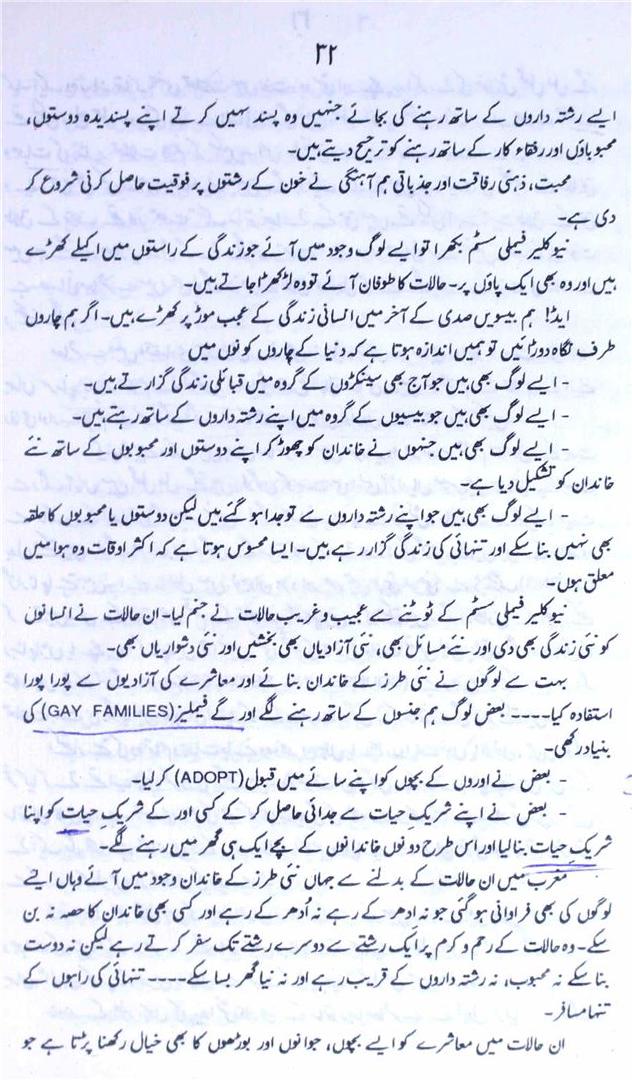 ۳۲
ایسے رشتہ داروں کے ساتھ رہنے کی بجائے جنہیں وہ پسند نہیں کرتے اپنے پسندیدہ دوستوں،
محبوباؤں اور رفقاء کار کے ساتھ رہنے کو ترجیح دیتے ہیں۔
محبت، ذہنی رفاقت اور جذباتی ہم آہنگی نے خون کے رشتوں پر فوقیت حاصل کرنی شروع کر
دی ہے۔
نیوکلیر فیملی سسٹم بکھرا تو ایسے لوگ وجود میں آئے جو زندگی کے راستوں میں اکیلے کھڑے
ہیں اور وہ بھی ایک پاؤں پر۔ حالات کا طوفان آئے تو وہ لڑکھڑا جاتے ہیں۔
لہذا ہم بیسویں صدی کے آخر میں انسانی زندگی کے عجب موڑ پر کھڑے ہیں۔ اگر ہم چاروں
طرف نگاہ دوڑائیں تو ہمیں اندازہ ہوتا ہے کہ دنیا کے چاروں کونوں میں
- ایسے لوگ بھی ہیں جو آج بھی سینکڑوں کے گروہ میں قبائلی زندگی گزارتے ہیں۔
- ایسے لوگ بھی ہیں جو بیسیوں کے گروہ میں اپنے رشتہ داروں کے ساتھ رہتے ہیں۔
- ایسے لوگ بھی ہیں جنہوں نے خاندان کو چھوڑ کر اپنے دوستوں اور محبوبوں کے ساتھ نئے
خاندان کو تشکیل دیا ہے۔
- ایسے لوگ بھی ہیں جو اپنے رشتہ داروں سے تو جدا ہو گئے ہیں لیکن دوستوں یا محبوبوں کا حلقہ
بھی نہیں بنا سکے اور تنہائی کی زندگی گزار رہے ہیں۔ ایسا محسوس ہوتا ہے کہ اکثر اوقات وہ ہوا میں
معلق ہوں۔
نیوکلیر فیملی سسٹم کے ٹوٹنے سے عجیب و غریب حالات نے جنم لیا۔ ان حالات نے انسانوں
کو نئی زندگی بھی دی اور نئے مسائل بھی، نئی آزادیاں بھی بخشیں اور نئی دشواریاں بھی۔
بہت سے لوگوں نے نئی طرز کے خاندان بنانے اور معاشرے کی آزادیوں سے پورا پورا
استفادہ کیا۔۔۔۔ بعض لوگ ہم جنسوں کے ساتھ رہنے لگے اور گے فیملیز (GAY FAMILIES) کی
بنیاد رکھی۔
- بعض نے اوروں کے بچوں کو اپنے سائے میں قبول (ADOPT) کر لیا۔
- بعض نے اپنے شریکِ حیات سے جدائی حاصل کر کے کسی اور کے شریکِ حیات کو اپنا
شریکِ حیات بنا لیا اور اس طرح دونوں خاندانوں کے بچے ایک ہی گھر میں رہنے لگے۔
مغرب میں ان حالات کے بدلنے سے جہاں نئی طرز کے خاندان وجود میں آئے وہاں ایسے
لوگوں کی بھی فراوانی ہو گئی جو نہ اِدھر کے رہے نہ اُدھر کے رہے اور کسی بھی خاندان کا حصہ نہ بن
سکے۔ وہ حالات کے رحم و کرم پر ایک رشتے سے دوسرے رشتے تک سفر کرتے رہے لیکن نہ دوست
بنا سکے نہ محبوب، نہ رشتہ داروں کے قریب رہے اور نہ نیا گھر بسا سکے۔۔۔۔ تنہائی کی راہوں کے
تنہا مسافر۔
ان حالات میں معاشرے کو ایسے بچوں، جوانوں اور بوڑھوں کا بھی خیال رکھنا پڑتا ہے جو